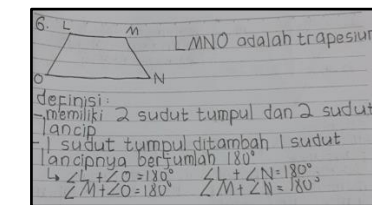 6.
L
M
LMNO adalah trapesiur
O
N
definisi:
-memiliki 2 sudut tumpul dan 2 sudut
lancip
- 1 sudut tumpul ditambah 1 sudut
lancipnya berjumlah 180°
↳ ∠L +∠O =180° ∠L + ∠N=180°
∠M+∠O=180° ∠M+ ∠N=180°